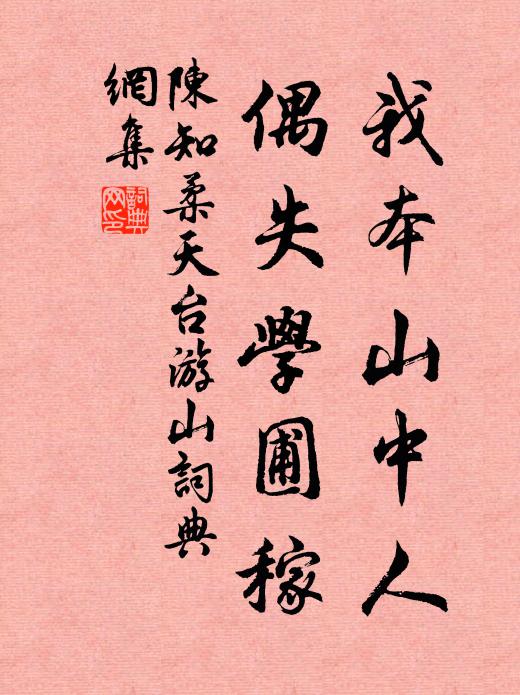 我本山中人
偶失學圃稼
陳知柔天台游山詞典
網集
詞典
网印